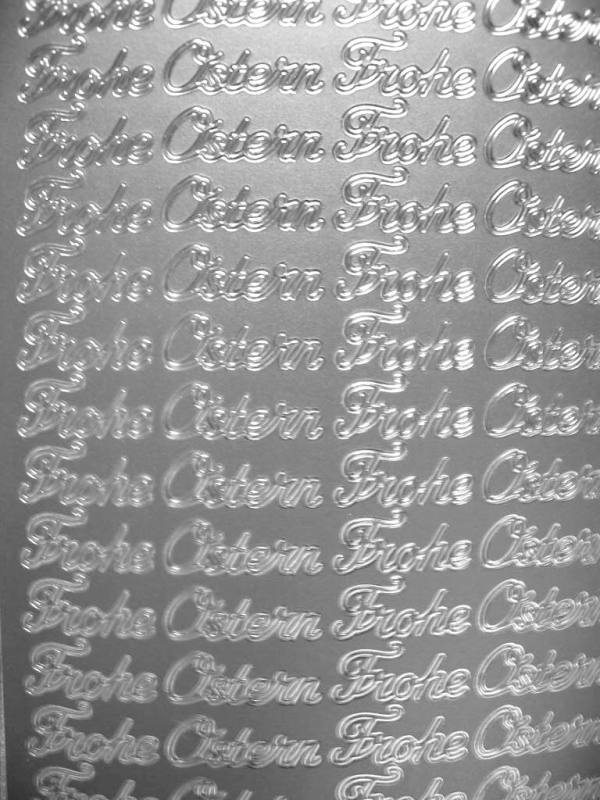 Frohe Ostern Frohe Ostern
Frohe Ostern Frohe Ostern
Frohe Ostern Frohe Ostern
Frohe Ostern Frohe Ostern
Frohe Ostern Frohe Ostern
Frohe Ostern Frohe Ostern
Frohe Ostern Frohe Ostern
Frohe Ostern Frohe Ostern
Frohe Ostern Frohe Ostern
Frohe Ostern Frohe Ostern
Frohe Ostern Frohe Ostern
Frohe Ostern Frohe Ostern